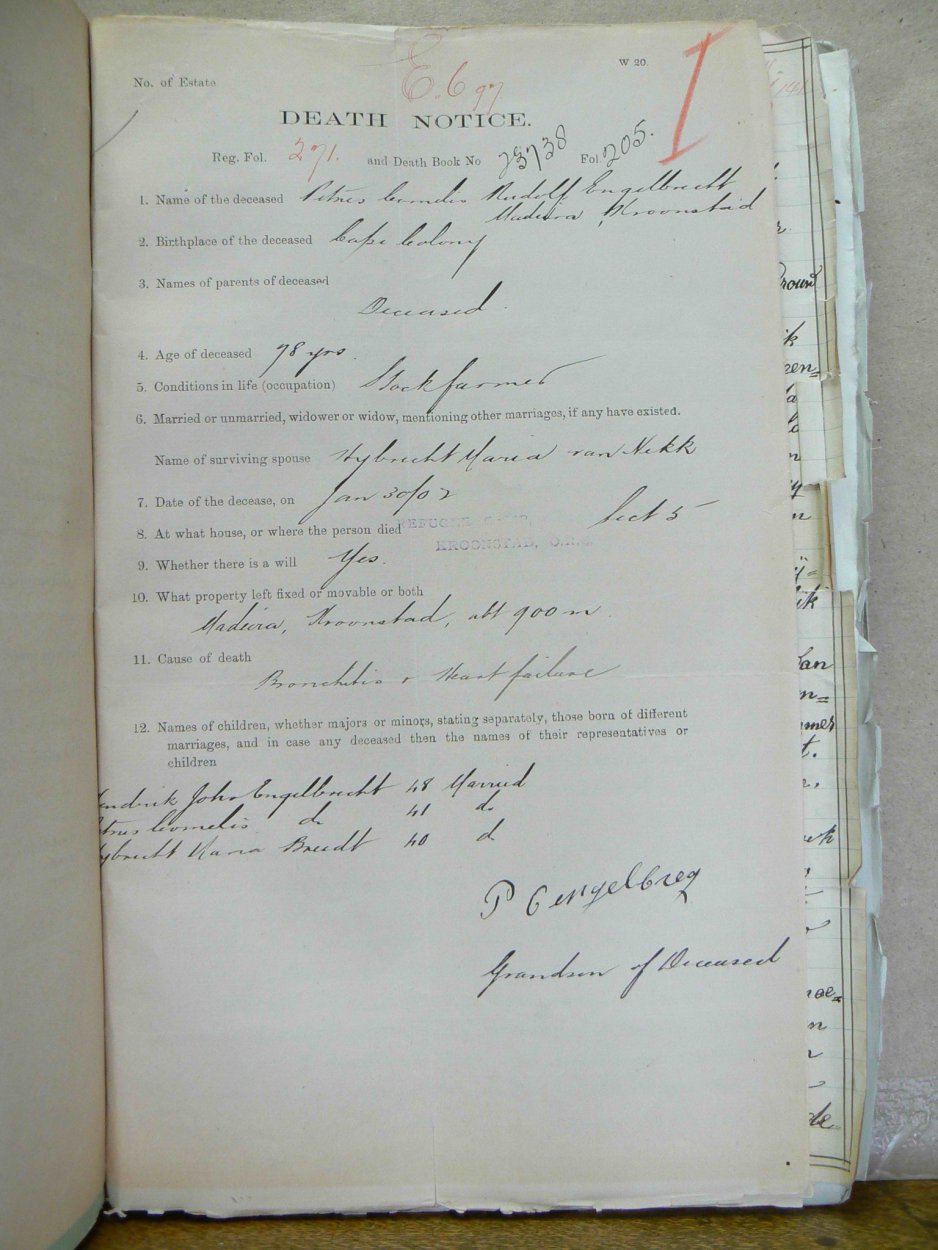 W 20.
No. of Estate
E. 697
I
DEATH NOTICE.
Reg. Fol. 271. and Death Book No 23738 Fol. 205.
1. Name of the deceased Petrus Cornelis Rudolf Engelbrecht
Madeira, Kroonstad
2. Birthplace of the deceased Cape Colony
3. Names of parents of deceased
Deceased.
4. Age of deceased 78 yrs.
5. Conditions in life (occupation) Stock farmer
6. Married or unmarried, widower or widow, mentioning other marriages, if any have existed.
Name of surviving spouse Hybrecht Maria van Nikk
7. Date of the decease, on Jan 30/02
8. At what house, or where the person died REFUGEE CAMP Sect 5
KROONSTAD, O.R.C.
9. Whether there is a will Yes.
10. What property left fixed or movable or both
Madeira, Kroonstad, abt 900 m
11. Cause of death
Bronchitis & Heart failure
12. Names of children, whether majors or minors, stating separately, those born of different
marriages, and in case any deceased then the names of their representatives or
children
endrik John Engelbrecht 48 Married
trus Cornelis do 41 do
ybrecht Maria Breedt 40 do
P Cengelbreg
Grandson of Deceased